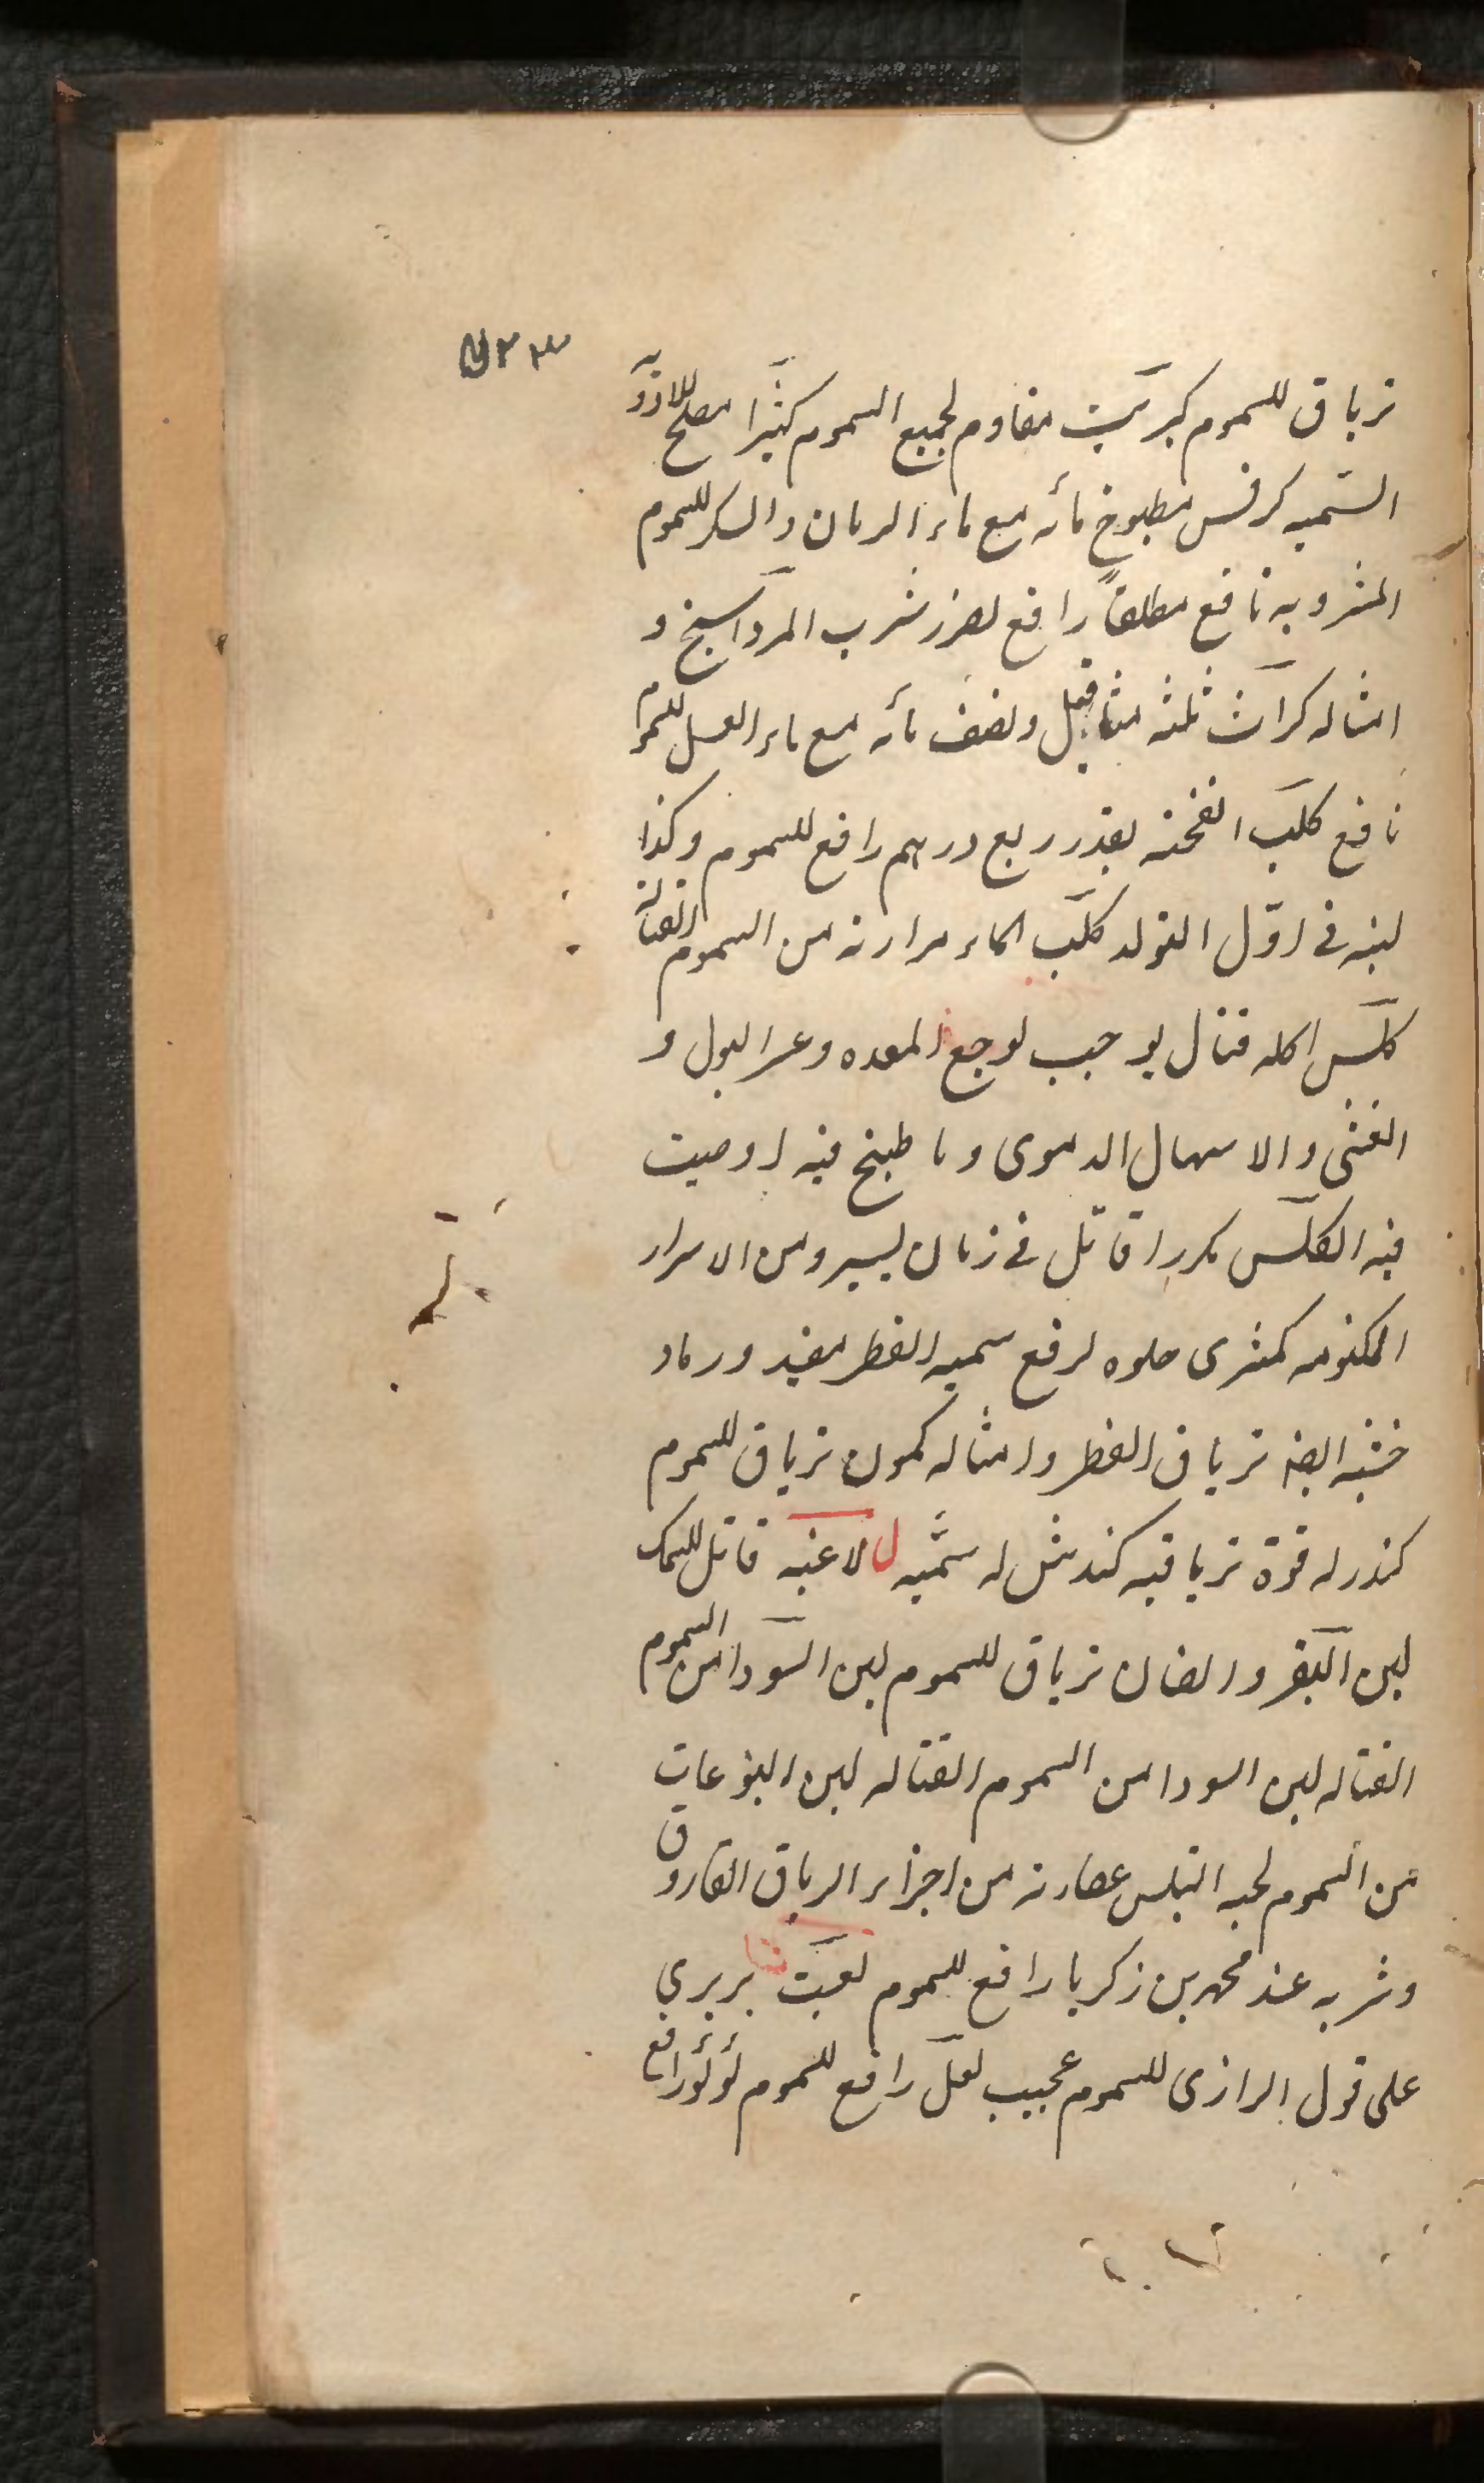 ترياق للسموم كبريت مقاوم لجميع السموم كثيرا مصلح للادوية
السّميه كرفس مطبوخ مائه مع ماء الرمان والسكر للسموم
المشروبه نافع مطلقاً رافع لضرر شرب المرداسنج و
امثاله كراث ثلثه مثاقيل ونصف مائه مع ماء العسل للسموم
نافع كلب انفحته بقدر ربع درهم رافع للسموم وكذا
لبنه فى اوّل التولد كلب الماء مرارته من السموم القتالة
كلس اكله قتال يوجب لوجع المعده وعسر البول و
الغشى والاسهال الدموى وما طبخ فيه او صيت
فيه الكلس مكررا قاتل فى زمان يسير ومن الاسرار
المكتومه كمثرى حلوه لرفع سميه الفطر مفيد ورماد
خشبه ايضا ترياق الفطر وامثاله كمون ترياق للسموم
كندر له قوة ترياقيه كندش له سمّيه ل لاغيه قاتل للسمك
لبن البقر والضان ترياق للسموم لبن السودا من السموم
القتاله لبن السودا من السموم القتاله لبن اليتوعات
من السموم لحيه التيس عصارته من اجزاء الرياق الفاروق
وشربه عند محمد بن زكريا رافع للسموم لعبت بربري
على قول الرازى للسموم عجيب لعل رافع للسموم لؤلؤ رافع